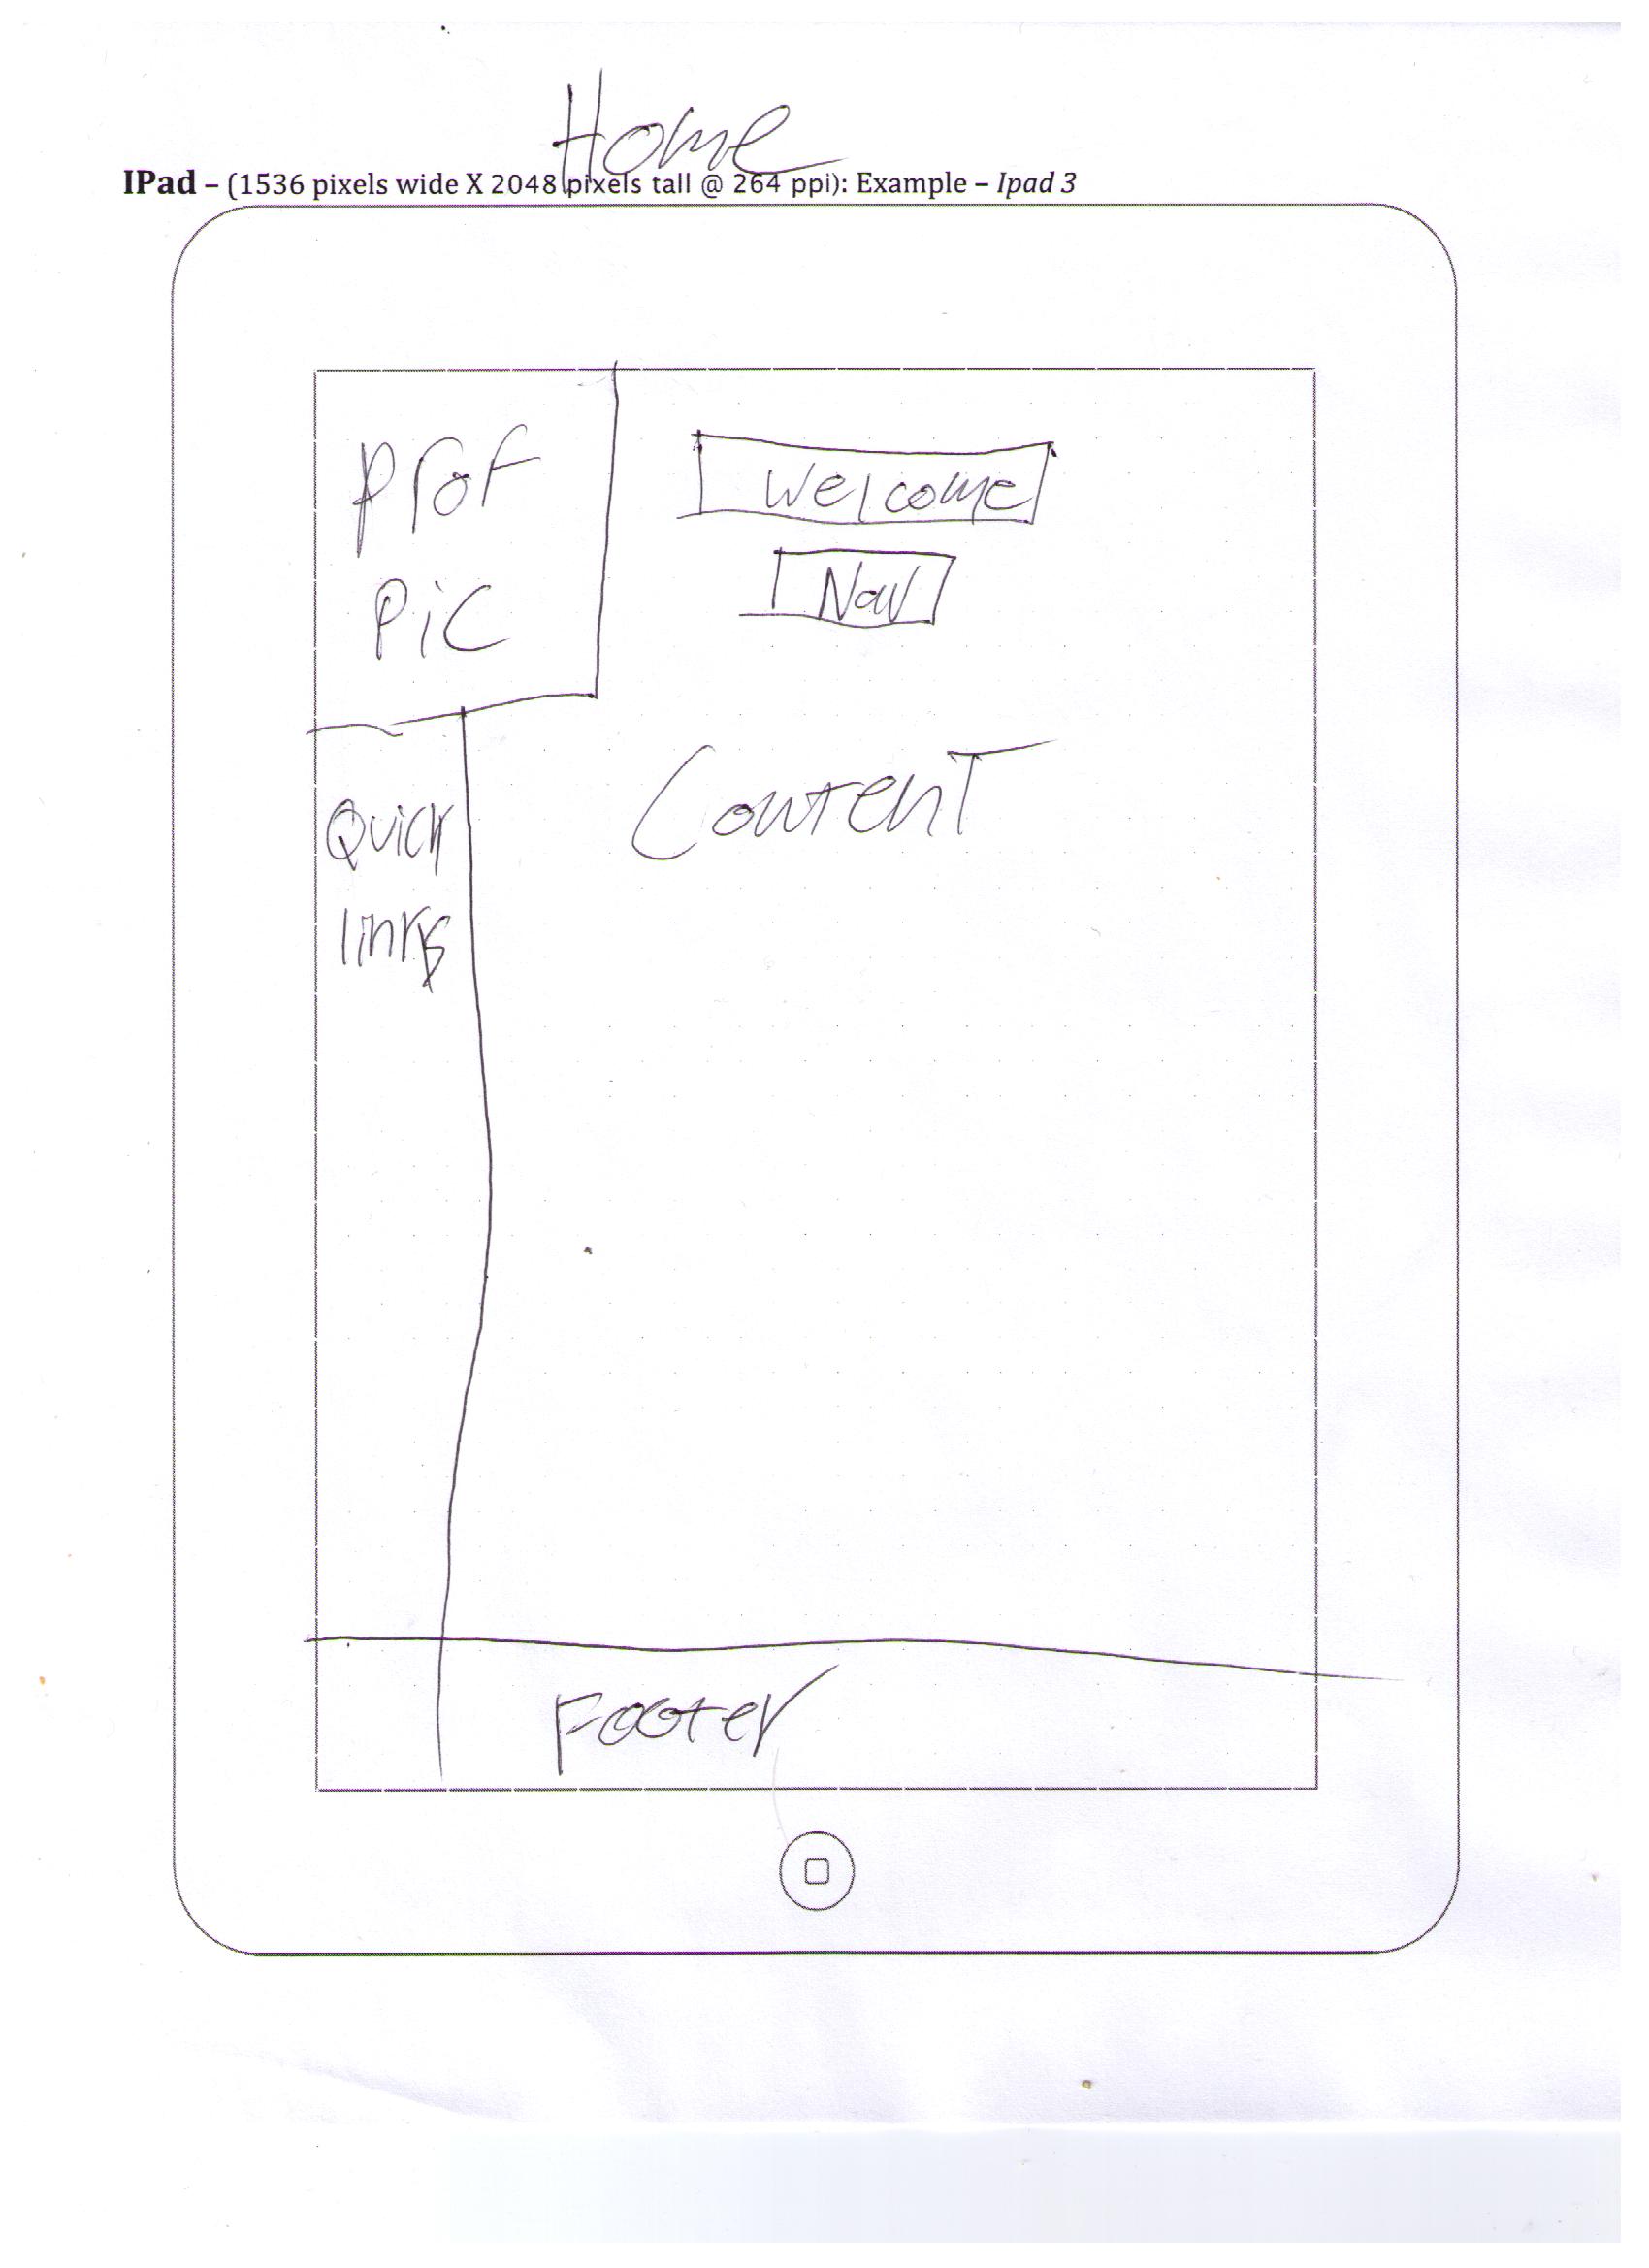 Home
IPad – (1536 pixels wide X 2048 pixels tall @ 264 ppi): Example – Ipad 3
Prof
Pic
Welcome
Nav
Content
Quick
links
Footer